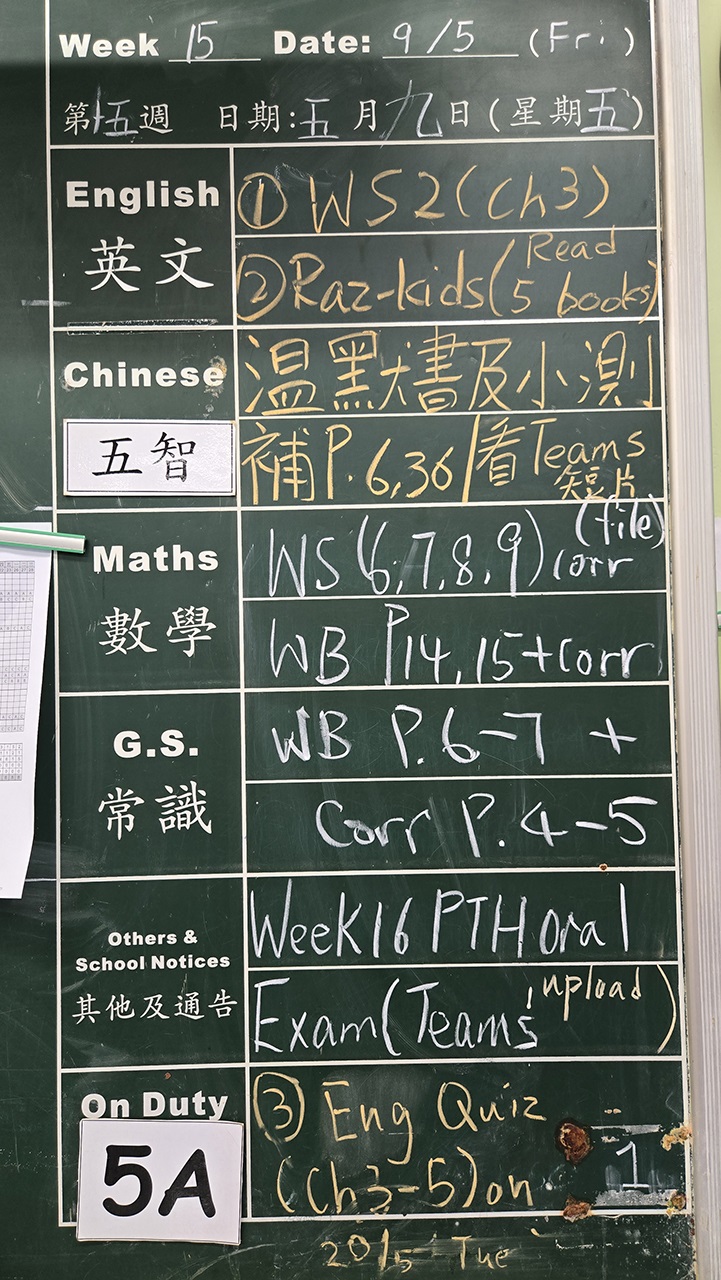 Week 15 Date: 9/5 (Fri)
第十五週 日期:五月九日(星期五)
English
英文
① WS2(Ch3)
② Raz-kids(Read 5 books)
Chinese
五智
溫默書及小測
補P.6,36/看Teams短片
Maths
數學
WS(6,7,8,9)corr (file)
WB P14,15+corr
G.S.
常識
WB P.6-7 +
Corr P.4-5
Others &
School Notices
其他及通告
Week16 PTH Oral
Exam(Teams upload)
On Duty
5A
③ Eng Quiz
(Ch3-5)on
1
20/5 Tue